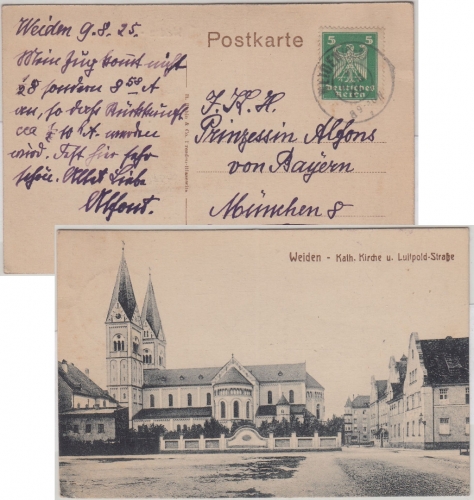 Weiden 9.8.25.
Postkarte
Mein Zug kommt nicht
sondern 8 58 A
an, so daß Rückkunft
ca 10 A. werden
wird. Fest hier sehr
schön. Alles Liebe
Alfons.
5 5
Deutsches
Reich
I. K. H.
Prinzessin Alfons
von Bayern
München 8
Weiden - Kath. Kirche u. Luitpold-Straße